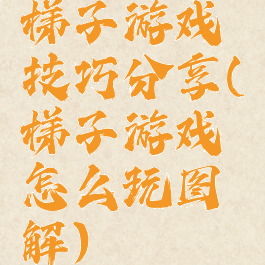 梯子游戏
技巧分享(
梯子游戏
怎么玩图
解)